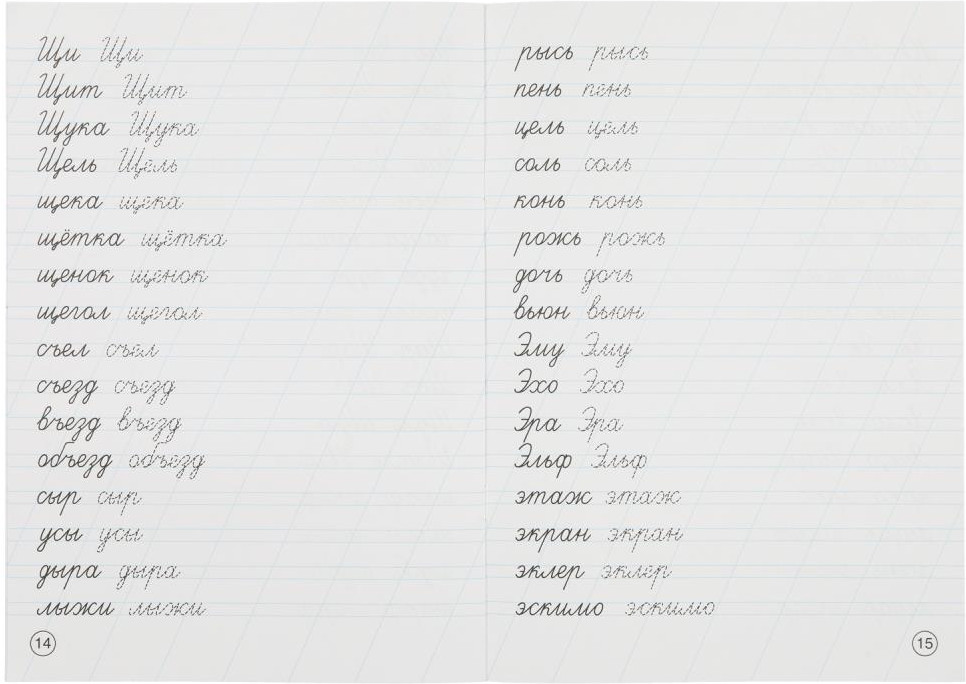 Щи Щи
Щит Щит
Щука Щука
Щель Щель
щека щека
щётка щётка
щенок щенок
щегол щегол
съел съел
съезд съезд
въезд въезд
объезд объезд
сыр сыр
усы усы
дыра дыра
лыжи лыжи
14
рысь рысь
пень пень
цель цель
соль соль
конь конь
рожь рожь
дочь дочь
вьюн вьюн
Эму Эму
Эхо Эхо
Эра Эра
Эльф Эльф
этаж этаж
экран экран
эклер эклер
эскимо эскимо
15